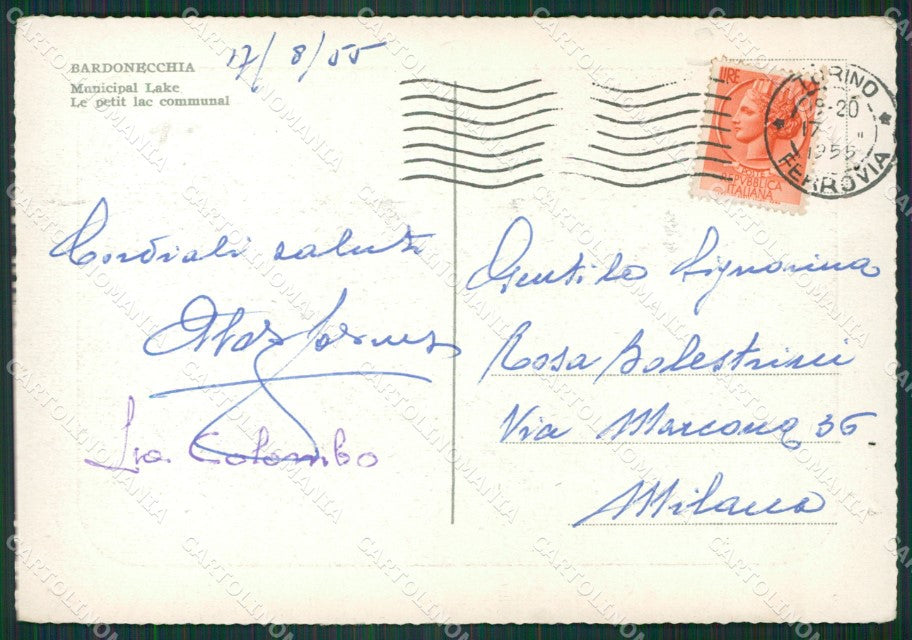 BARDONECCHIA
Municipal Lake
Le petit lac communal
17/8/55
LIRE
POSTE
REPVBBLICA
ITALIANA
TORINO
08-20
17
1955
FERROVIA
Cordiali saluti
Lia Colombo
Gentile Signorina
Rosa Balestrini
Via Marcona 36
Milano
CARTOLINOMANIA